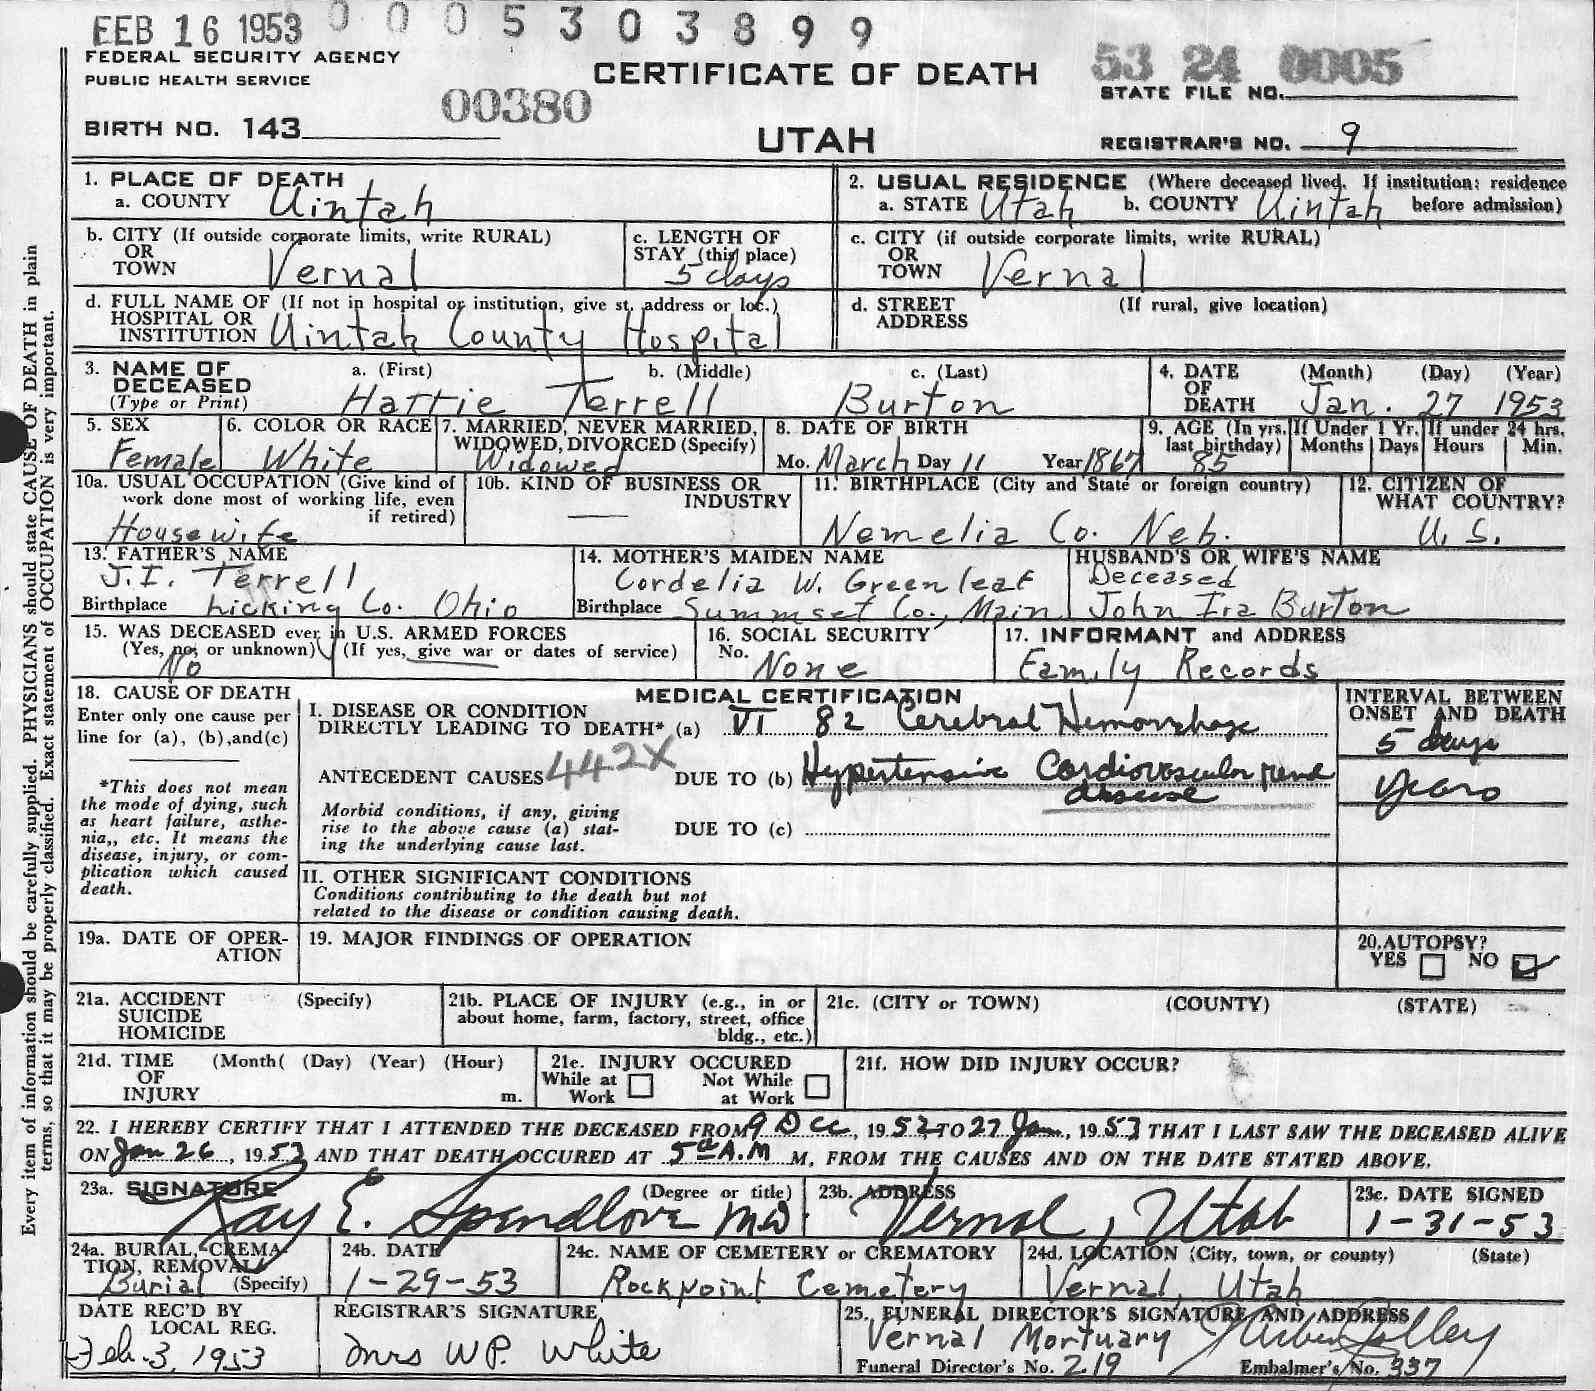 FEB 16 1953 0005303899
FEDERAL SECURITY AGENCY
PUBLIC HEALTH SERVICE
CERTIFICATE OF DEATH
53 24 0005
STATE FILE NO.
00380
BIRTH NO. 143
UTAH
REGISTRAR'S NO. 9
Every item of information should be carefully supplied. PHYSICIANS should state CAUSE OF DEATH in plain
terms, so that it may be properly classified. Exact statement of OCCUPATION is very important.
1. PLACE OF DEATH
a. COUNTY Uintah
2. USUAL RESIDENCE (Where deceased lived. If institution: residence
a. STATE Utah b. COUNTY Uintah before admission)
b. CITY (If outside corporate limits, write RURAL)
OR
TOWN Vernal
c. LENGTH OF
STAY (this place)
5 days
c. CITY (if outside corporate limits, write RURAL)
OR
TOWN Vernal
d. FULL NAME OF (If not in hospital or institution, give st. address or loc.)
HOSPITAL OR
INSTITUTION Uintah County Hospital
d. STREET (If rural, give location)
ADDRESS
3. NAME OF a. (First) b. (Middle) c. (Last)
DECEASED
(Type or Print) Hattie Terrell Burton
4. DATE (Month) (Day) (Year)
OF
DEATH Jan. 27 1953
5. SEX
Female
6. COLOR OR RACE
White
7. MARRIED, NEVER MARRIED,
WIDOWED, DIVORCED (Specify)
Widowed
8. DATE OF BIRTH
Mo. March Day 11 Year 1867
9. AGE (In yrs. If Under 1 Yr. If under 24 hrs.
last birthday) Months Days Hours Min.
85
10a. USUAL OCCUPATION (Give kind of
work done most of working life, even
if retired)
Housewife
10b. KIND OF BUSINESS OR
INDUSTRY
11. BIRTHPLACE (City and State or foreign country)
Nemelia Co. Neb.
12. CITIZEN OF
WHAT COUNTRY?
U. S.
13. FATHER'S NAME
J. I. Terrell
Birthplace Licking Co. Ohio
14. MOTHER'S MAIDEN NAME
Cordelia W. Greenleaf
Birthplace Summset Co., Main
HUSBAND'S OR WIFE'S NAME
Deceased
John Ira Burton
15. WAS DECEASED ever in U.S. ARMED FORCES
(Yes, no, or unknown) (If yes, give war or dates of service)
No
16. SOCIAL SECURITY
No.
None
17. INFORMANT and ADDRESS
Family Records
18. CAUSE OF DEATH
Enter only one cause per
line for (a), (b), and (c)
*This does not mean
the mode of dying, such
as heart failure, asthe-
nia,, etc. It means the
disease, injury, or com-
plication which caused
death.
MEDICAL CERTIFICATION
I. DISEASE OR CONDITION
DIRECTLY LEADING TO DEATH* (a) VI 82 Cerebral Hemorrhage
ANTECEDENT CAUSES 442X DUE TO (b) Hypertensive Cardiovascular renal
disease
Morbid conditions, if any, giving
rise to the above cause (a) stat-
ing the underlying cause last.
DUE TO (c)
INTERVAL BETWEEN
ONSET AND DEATH
5 days
years
II. OTHER SIGNIFICANT CONDITIONS
Conditions contributing to the death but not
related to the disease or condition causing death.
19a. DATE OF OPER-
ATION
19. MAJOR FINDINGS OF OPERATION
20. AUTOPSY?
YES NO
21a. ACCIDENT (Specify)
SUICIDE
HOMICIDE
21b. PLACE OF INJURY (e.g., in or
about home, farm, factory, street, office
bldg., etc.)
21c. (CITY or TOWN) (COUNTY) (STATE)
21d. TIME (Month( (Day) (Year) (Hour)
OF
INJURY m.
21e. INJURY OCCURED
While at Not While
Work at Work
21f. HOW DID INJURY OCCUR?
22. I HEREBY CERTIFY THAT I ATTENDED THE DECEASED FROM 9 Dec, 1952 TO 27 Jan, 1953 THAT I LAST SAW THE DECEASED ALIVE
ON Jan 26, 1953 AND THAT DEATH OCCURED AT 5 A.M M, FROM THE CAUSES AND ON THE DATE STATED ABOVE.
23a. SIGNATURE (Degree or title)
Ray E. Spendlove MD
23b. ADDRESS
Vernal, Utah
23c. DATE SIGNED
1-31-53
24a. BURIAL, CREMA-
TION, REMOVAL
Burial (Specify)
24b. DATE
1-29-53
24c. NAME OF CEMETERY or CREMATORY
Rockpoint Cemetery
24d. LOCATION (City, town, or county) (State)
Vernal, Utah
DATE REC'D BY
LOCAL REG.
Feb. 3, 1953
REGISTRAR'S SIGNATURE
Mrs WP. White
25. FUNERAL DIRECTOR'S SIGNATURE AND ADDRESS
Vernal Mortuary
Funeral Director's No. 219 Embalmer's No. 337